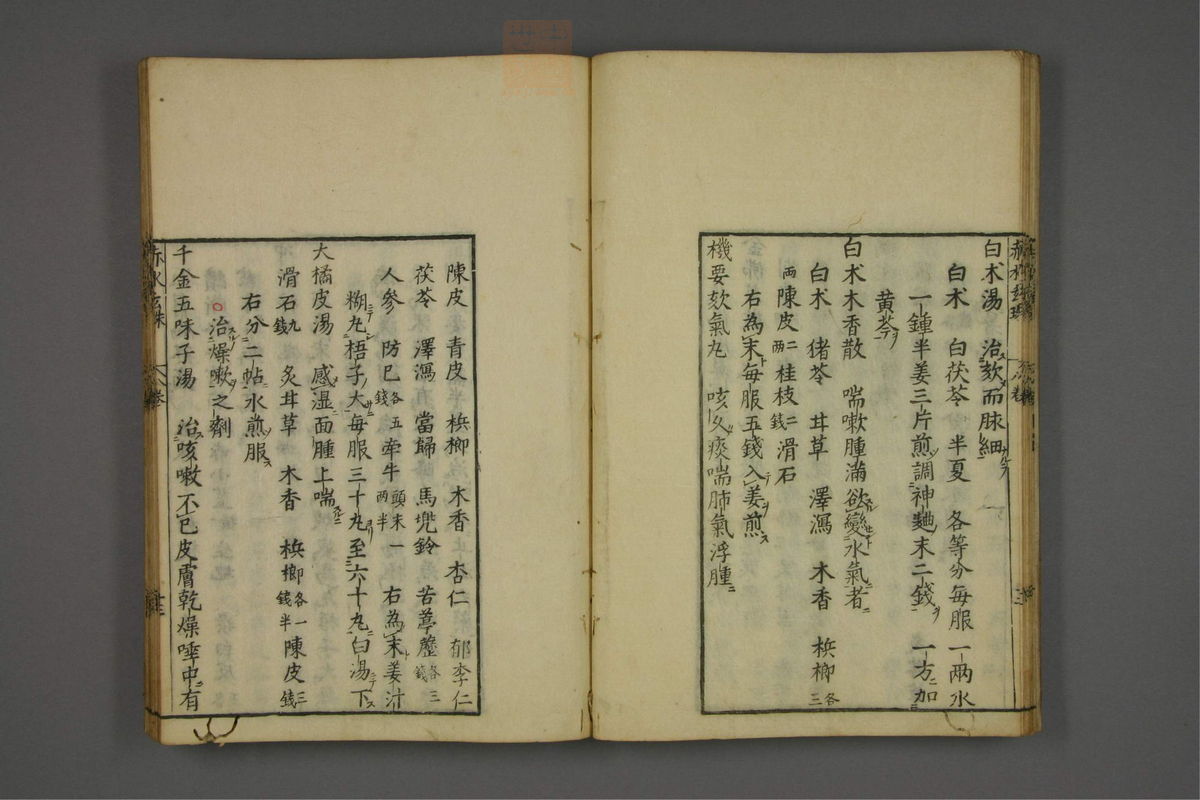 白朮湯 治欬而脉細
白朮 白茯苓 半夏 各等分每服一兩水
一鍾半姜三片煎調神麯末二錢 一方加
黄芩
白朮木香散 喘嗽腫滿欲變水氣者
白朮 猪苓 甘草 澤瀉 木香 梹榔 各三
兩 陳皮 二兩 桂枝 二錢 滑石
右為末每服五錢入姜煎
機要欬氣丸 咳久痰喘肺氣浮腫
陳皮 青皮 梹榔 木香 杏仁 郁李仁
茯苓 澤瀉 當歸 馬兜鈴 苦葶藶 各三錢
人参 防已 各五錢 牽牛 頭末一兩半 右為末姜汁
糊丸梧子大每服三十丸至六十丸白湯下
大橘皮湯 感湿面腫上喘
滑石 九錢 炙甘草 木香 梹榔 各一錢半 陳皮 三錢
右分二帖水煎服
治燥嗽之劑
千金五味子湯 治咳嗽不已皮膚乾燥唾中有
赤水玄珠